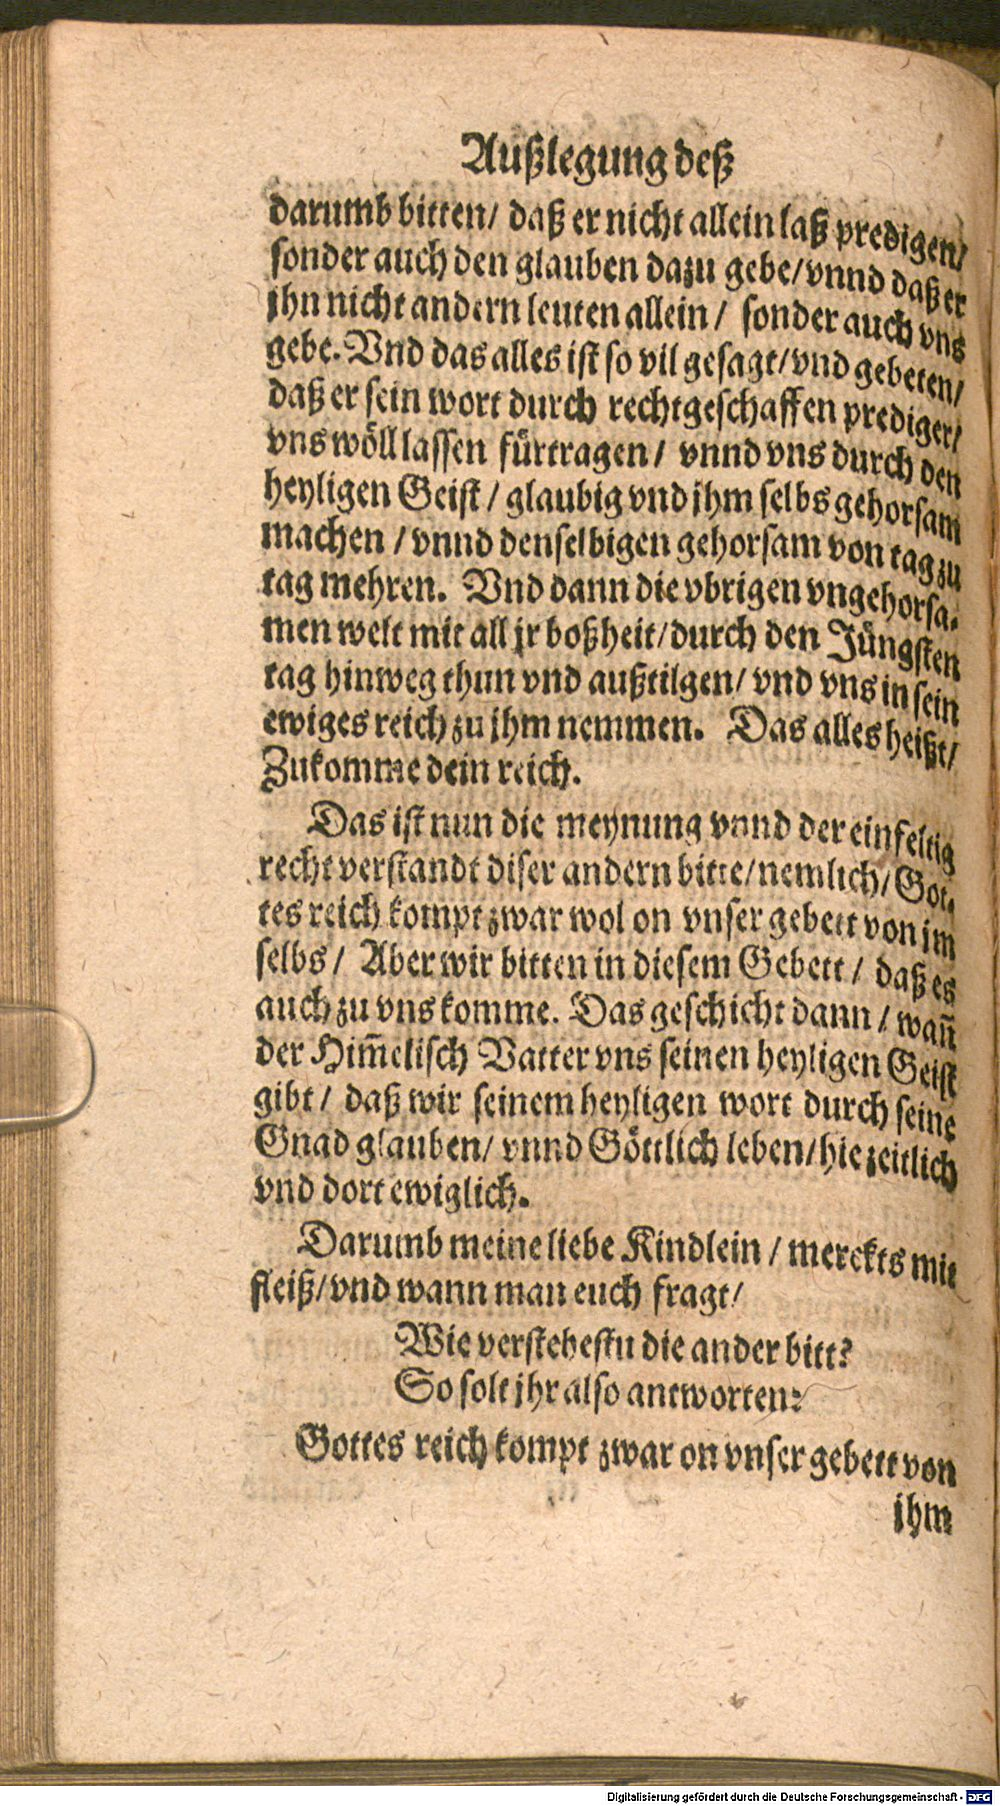 Außlegung deß
darumb bitten/ daß er nicht allein laß predigen/
sonder auch den glauben dazu gebe/vnnd daß er
jhn nicht andern leuten allein/ sonder auch vns
gebe. Vnd das alles ist so vil gesagt/vnd gebeten/
daß er sein wort durch rechtgeschaffen prediger/
vns wöll lassen fürtragen/ vnnd vns durch den
heyligen Geist/ glaubig vnd jhm selbs gehorsam
machen/ vnnd denselbigen gehorsam von tag zu
tag mehren. Vnd dann die vbrigen vngehorsa-
men welt mit all jr boßheit/durch den Jüngsten
tag hinweg thun vnd außtilgen/ vnd vns in sein
ewiges reich zu jhm nemmen. Das alles heißt/
Zukomme dein reich.
Das ist nun die meynung vnnd der einfeltig
recht verstandt diser andern bitte/nemlich/Got-
tes reich kompt zwar wol on vnser gebett von jm
selbs/ Aber wir bitten in diesem Gebett/ daß es
auch zu vns komme. Das geschicht dann/ wañ
der Him̃elisch Vatter vns seinen heyligen Geist
gibt/ daß wir seinem heyligen wort durch seine
Gnad glauben/ vnnd Göttlich leben/hie zeitlich
vnd dort ewiglich.
Darumb meine liebe Kindlein/ merckts mit
fleiß/vnd wann man euch fragt/
Wie verstehestu die ander bitt?
So solt jhr also antworten:
Gottes reich kompt zwar on vnser gebett von
jhm
Digitalisierung gefördert durch die Deutsche Forschungsgemeinschaft - DFG